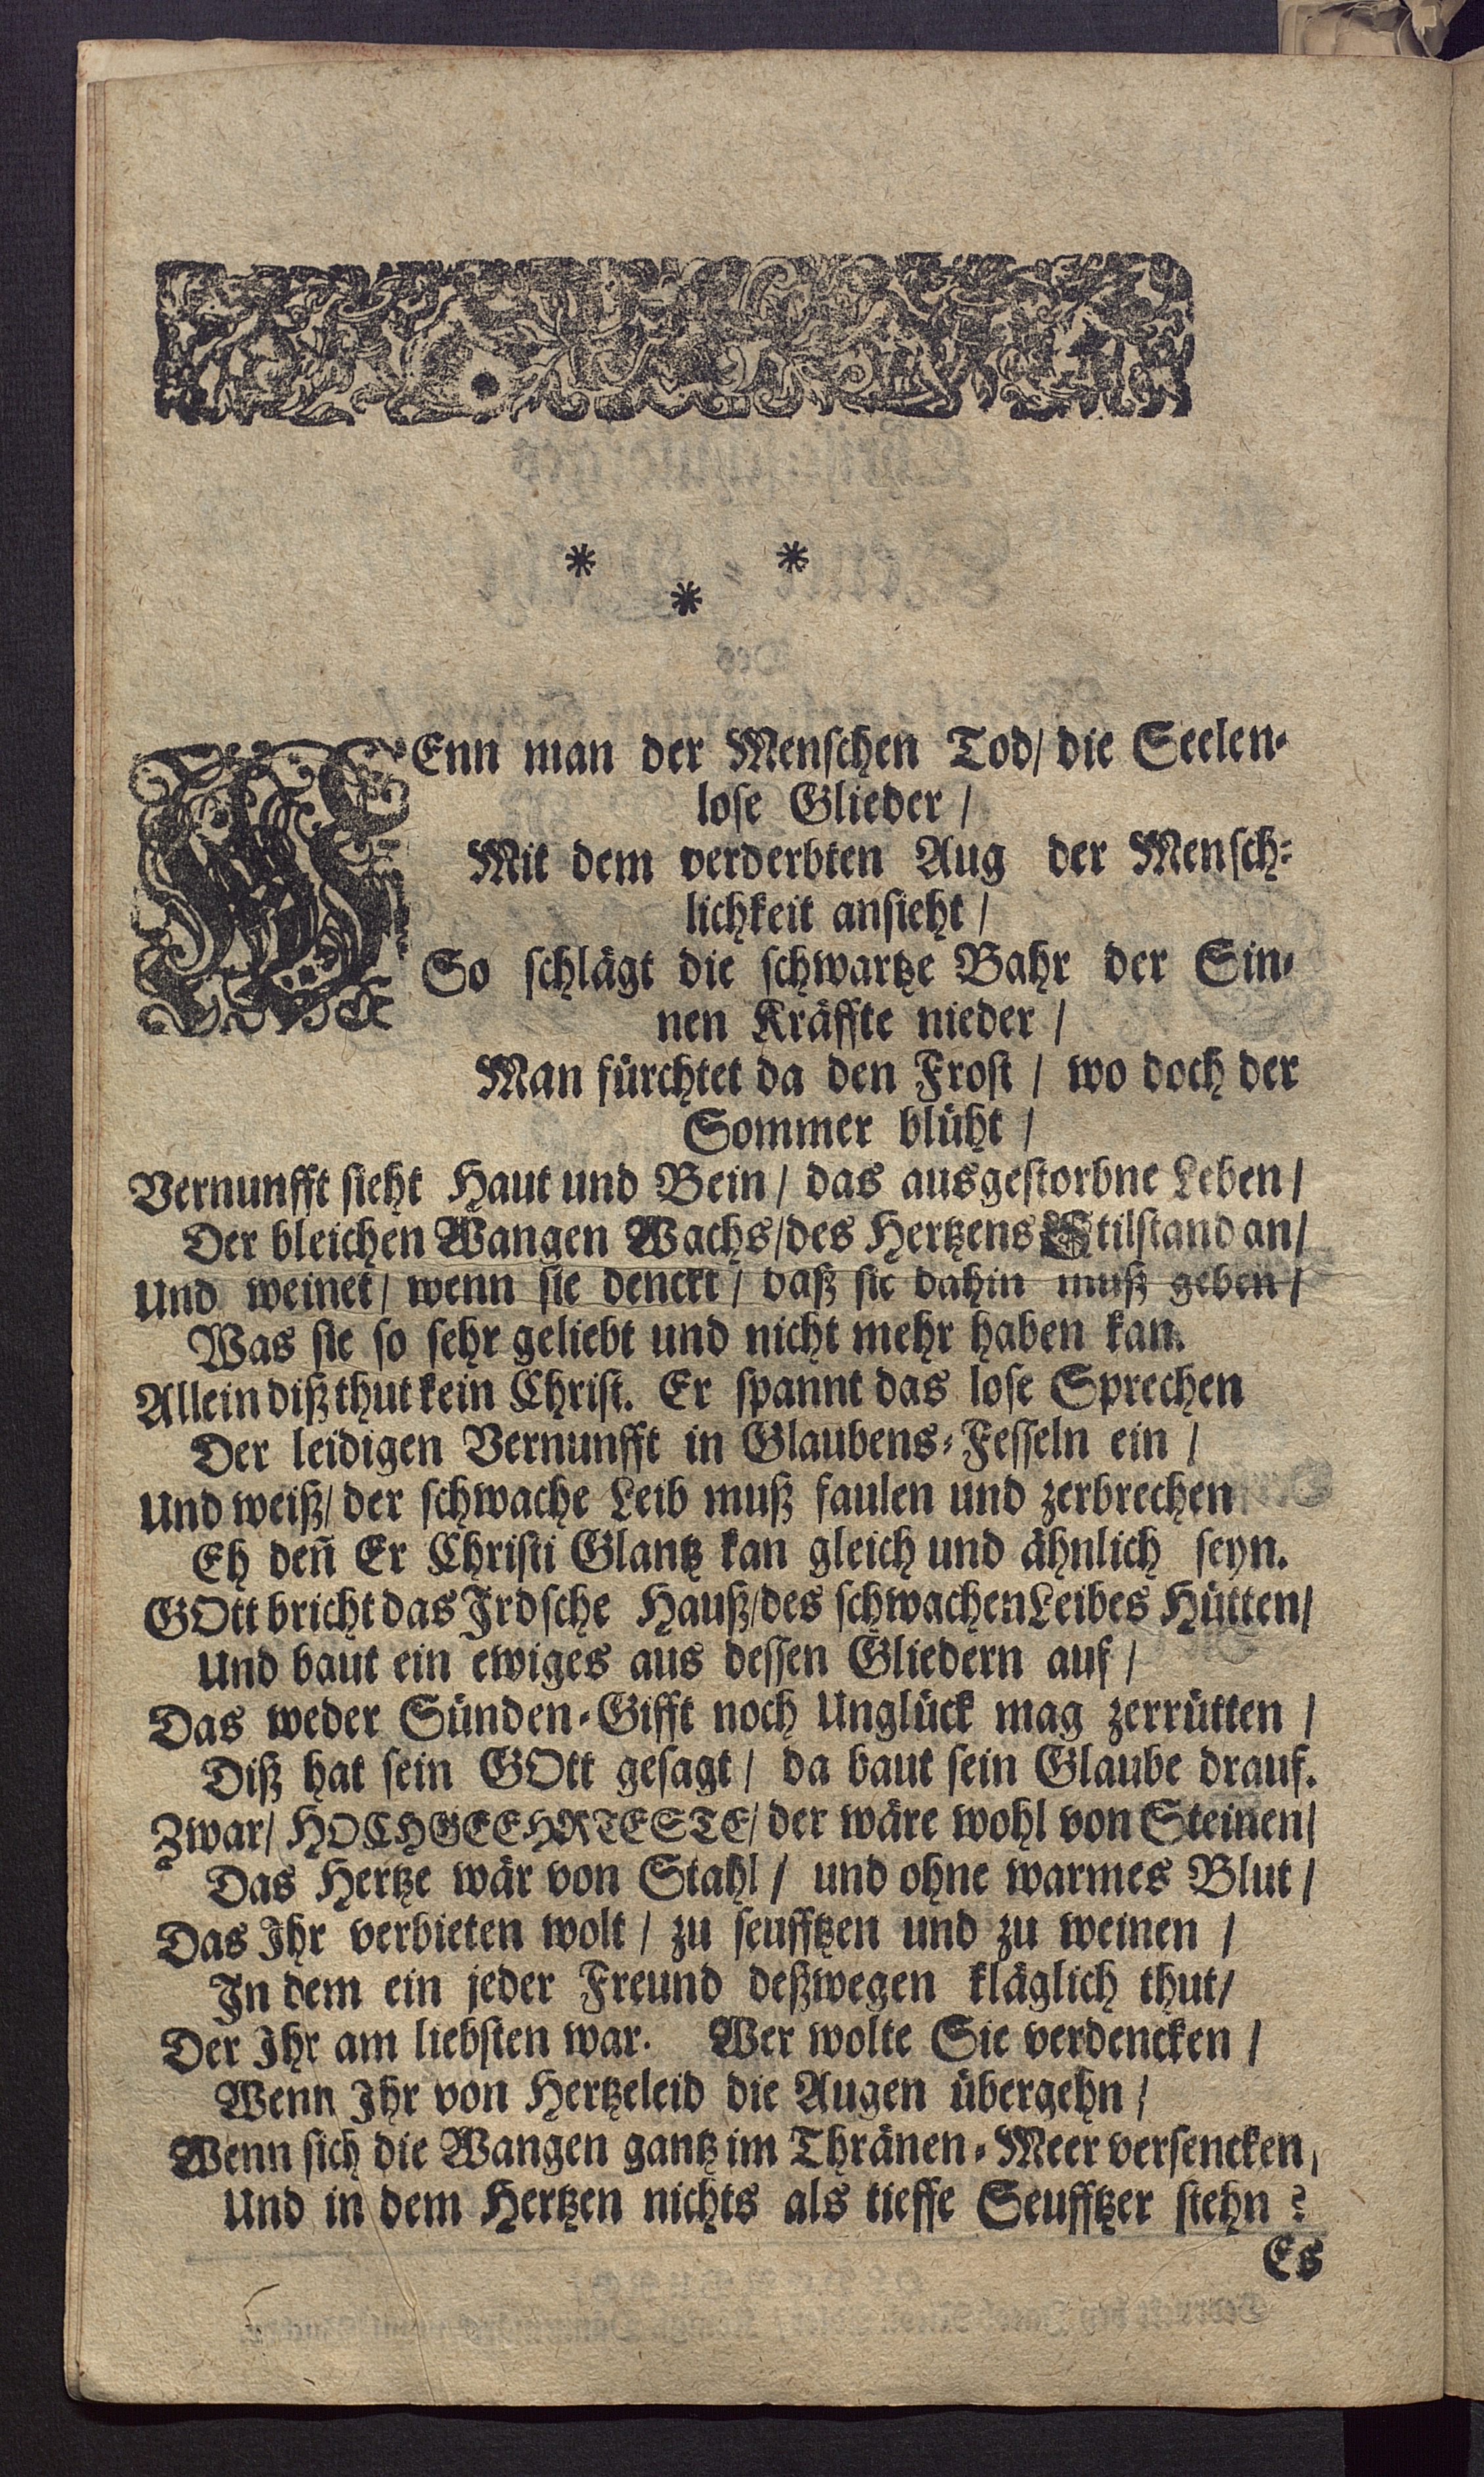 * *
*
WEnn man der Menschen Tod/ die Seelen-
lose Glieder /
Mit dem verderbten Aug der Mensch-
lichkeit ansieht /
So schlägt die schwartze Bahr der Sin-
nen Kräffte nieder /
Man fürchtet da den Frost / wo doch der
Sommer blüht /
Vernunfft sieht Haut und Bein / das ausgestorbne Leben /
Der bleichen Wangen Wachs/des Hertzens Stilstand an/
Und weinet / wenn sie denckt / daß sie dahin muß geben /
Was sie so sehr geliebt und nicht mehr haben kan.
Allein diß thut kein Christ. Er spannt das lose Sprechen
Der leidigen Vernunfft in Glaubens-Fesseln ein /
Und weiß/ der schwache Leib muß faulen und zerbrechen
Eh deñ Er Christi Glantz kan gleich und ähnlich seyn.
GOtt bricht das Irdsche Hauß/des schwachen Leibes Hütten/
Und baut ein ewiges aus dessen Gliedern auf /
Das weder Sünden-Gifft noch Unglück mag zerrütten /
Diß hat sein GOtt gesagt / da baut sein Glaube drauf.
Zwar/ HOCHGEEHRTESTE/ der wäre wohl von Steinen/
Das Hertze wär von Stahl / und ohne warmes Blut /
Das Ihr verbieten wolt / zu seufftzen und zu weinen /
In dem ein jeder Freund deßwegen kläglich thut/
Der Ihr am liebsten war. Wer wolte Sie verdencken /
Wenn Ihr von Hertzeleid die Augen übergehn /
Wenn sich die Wangen gantz im Thränen-Meer versencken,
Und in dem Hertzen nichts als tieffe Seufftzer stehn ?
Es